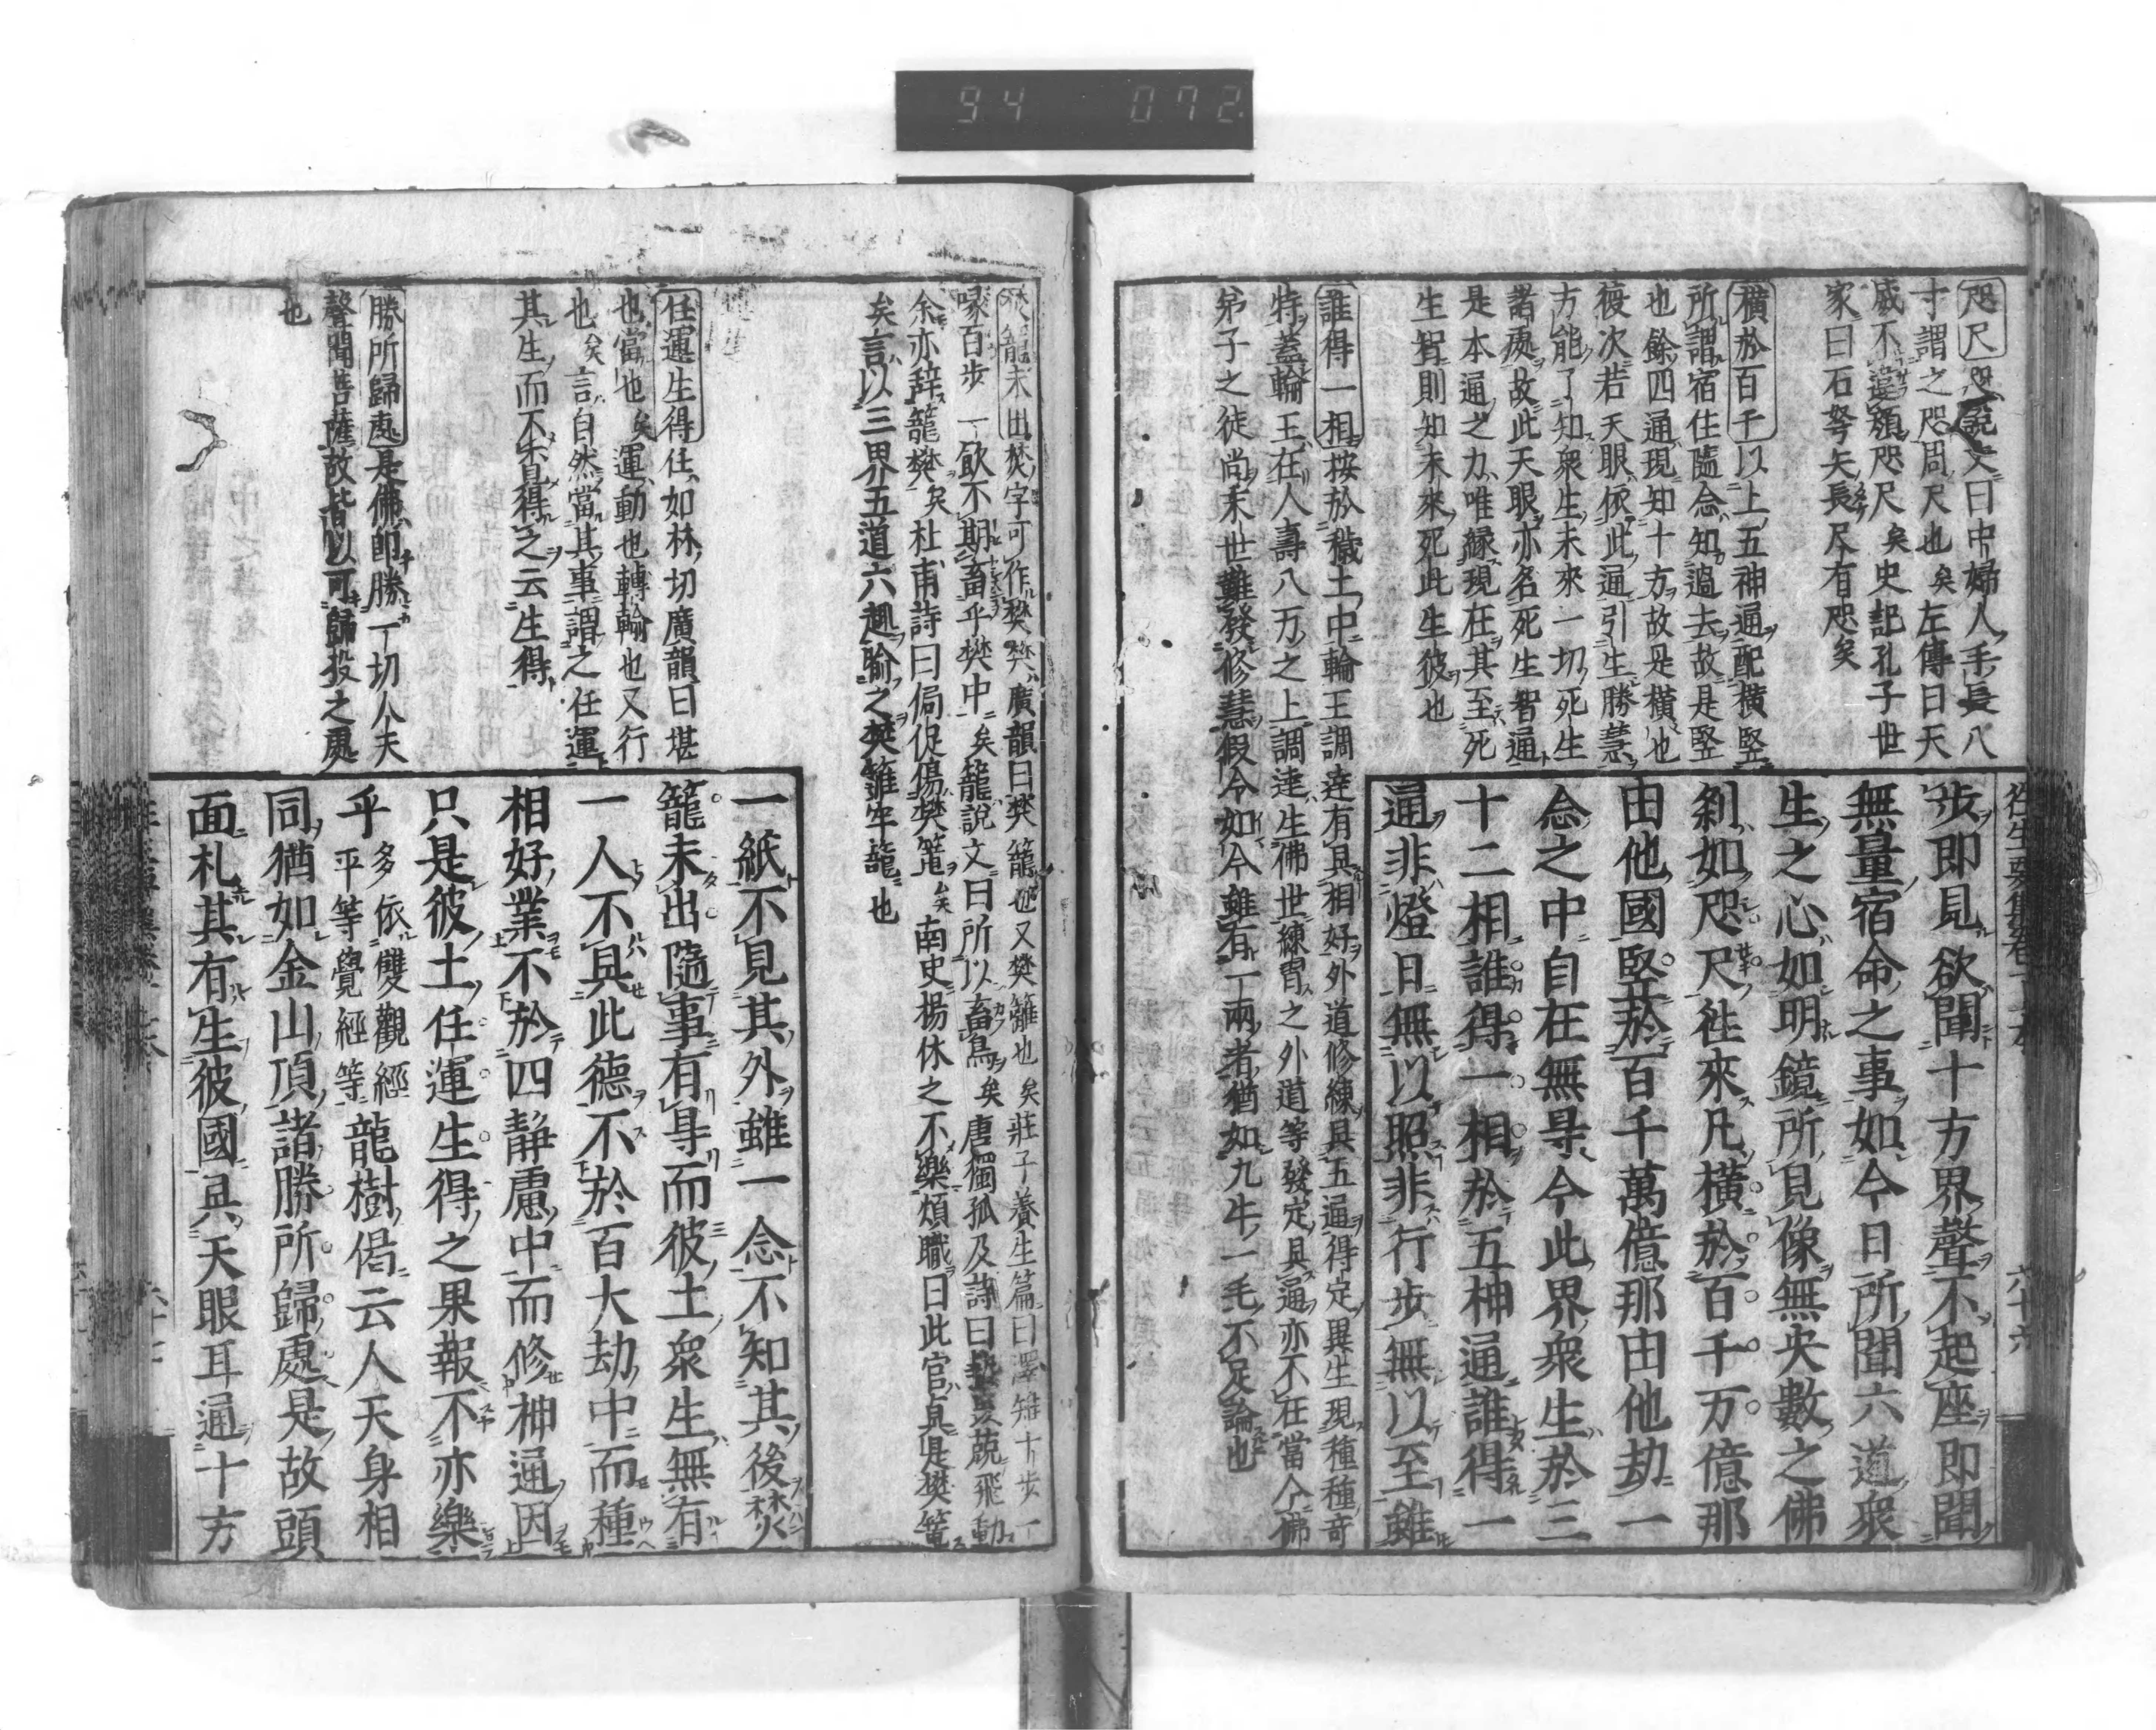 94 072
咫尺說文曰中婦人手長八
寸謂之咫周尺也矣左傳曰天
威不違顏咫尺矣史記孔子世
家曰石砮矢長尺有咫矣
橫於百千以上五神通配橫竪
所謂宿住隨念知過去故是竪
也餘四通現知十方故是橫也
復次若天眼依此通引生勝慧
方能了知衆生未來一切死生
諸處故此天眼亦名死生智通
是本通之力唯緣現在其至死
生智則知未來死此生彼也
誰得一相按於穢土中輪王調達有具相好外道修練具五通得定異生現種種奇
特蓋輪王在人壽八万之上調達生佛世練習之外道等發定具通亦不在當今佛
弟子之徒尚末世難發修慧假令如今雖有一兩者猶如九牛一毛不足論也
往生要集卷上本 六十六
步即見欲聞十方界聲不起座即聞
無量宿命之事如今日所聞六道衆
生之心如明鏡所見像無央數之佛
刹如咫尺徃來凡橫於百千万億那
由他國竪於百千萬億那由他劫一
念之中自在無㝵今此界衆生於三
十二相誰得一相於五神通誰得一
通非燈日無以照非行步無以至雖
籠未出焚字可作樊樊廣韻曰樊籠也又樊籬也矣莊子養生篇曰澤雉十步一
啄百步一飲不期畜乎樊中矣籠說文曰所以畜鳥矣唐獨孤及詩曰飛動
余亦辞籠樊矣杜甫詩曰侷促傷樊籠矣南史楊休之不樂煩職曰此官是樊籠
矣言以三界五道六趣喩之樊籬牢籠也
任運生得任如林切廣韻曰堪
也當也矣運動也轉輸也又行
也矣言自然當其事謂之任運
其生而不失見得之云生得
勝所歸處是佛即勝一切人天
聲聞菩薩故皆以可歸投之處
也
一紙不見其外雖一念不知其後焚
籠未出隨事有㝵而彼土衆生無有
一人不具此德不於百大劫中而種
相好業不於四靜慮中而修神通因
只是彼土任運生得之果報不亦樂
乎多依雙觀經平等覺經等龍樹偈云人天身相
同猶如金山頂諸勝所歸處是故頭
面札其有生彼國具天眼耳通十方